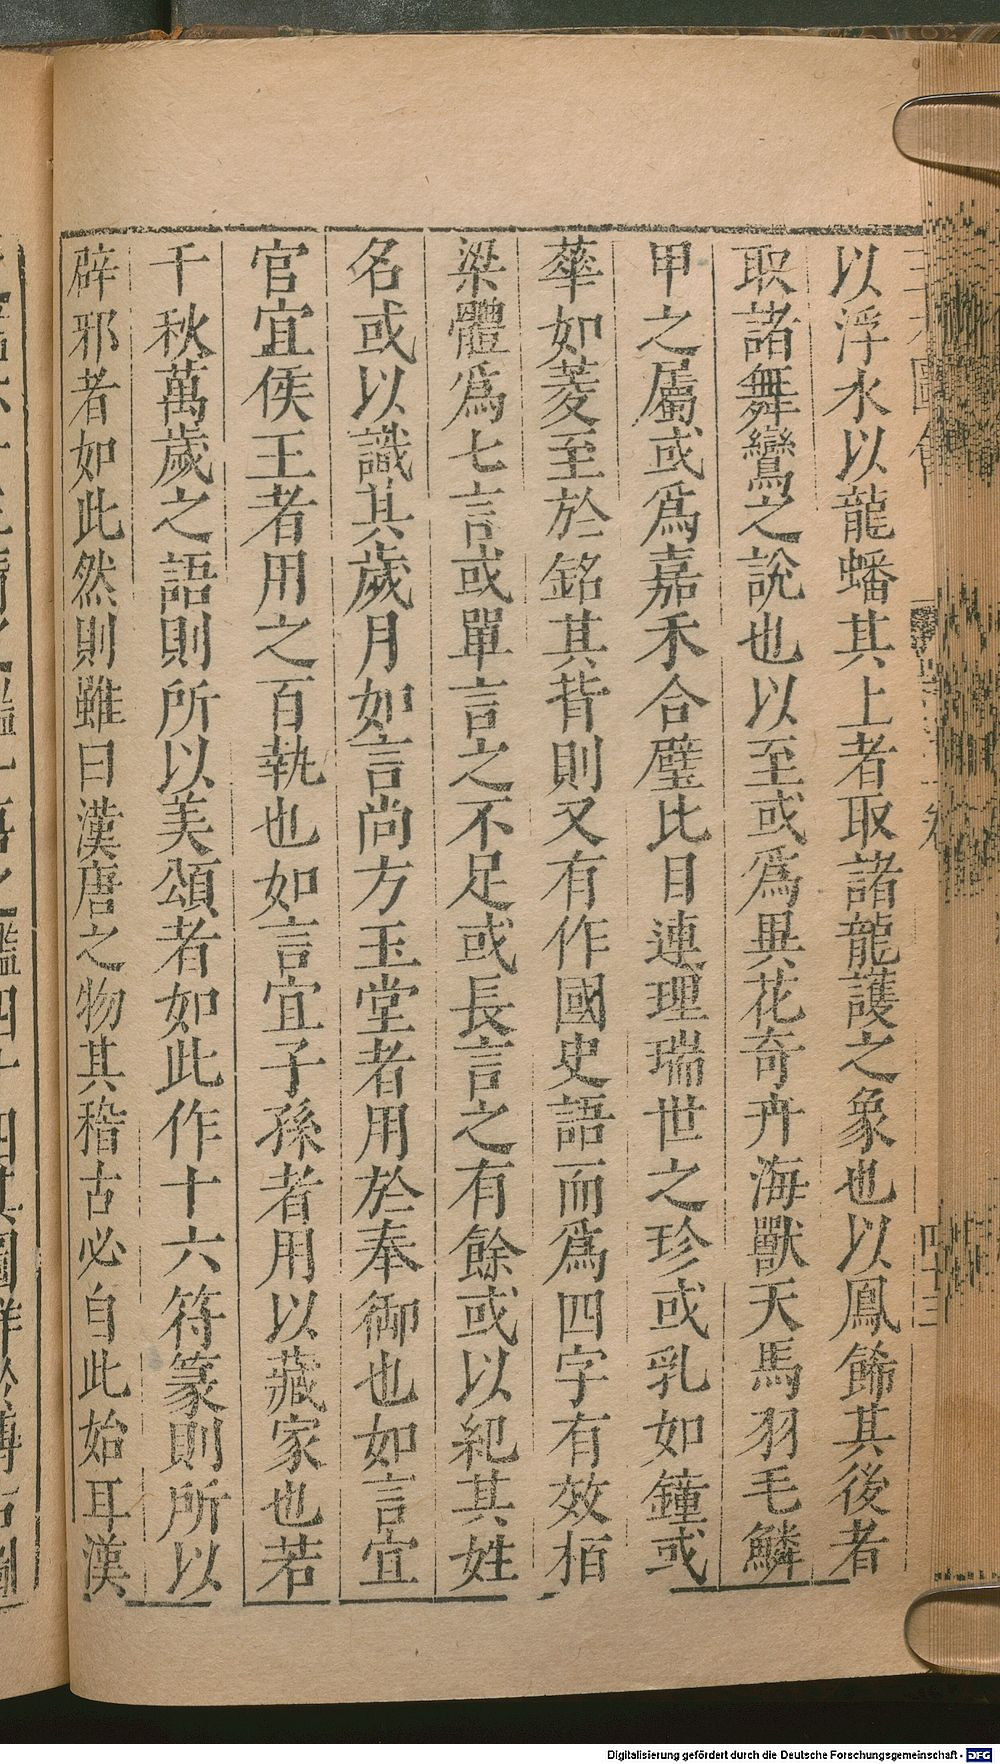 以浮水以龍蟠其上者取諸龍護之象也以鳳飾其後者
取諸舞鸞之說也以至或爲異花奇卉海獸天馬羽毛鱗
甲之屬或爲嘉禾合璧比目連理瑞世之珍或乳如鐘或
蕐如菱至於銘其背則又有作國史語而爲四字有效栢
梁體爲七言或單言之不足或長言之有餘或以紀其姓
名或以識其歲月如言尚方玉堂者用於奉御也如言宜
官宜侯王者用之百執也如言宜子孫者用以藏家也若
千秋萬歲之語則所以美頌者如此作十六符篆則所以
辟邪者如此然則雖曰漢唐之物其稽古必自此始耳漢
四十三
Digitalisierung gefördert durch die Deutsche Forschungsgemeinschaft - DFG